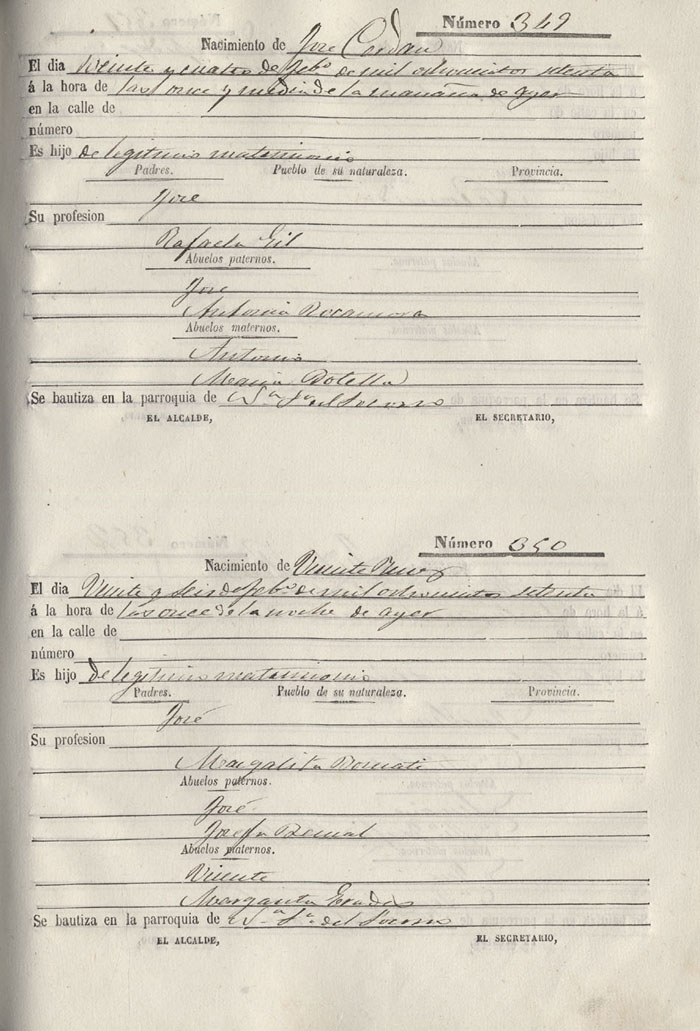 Número 349
Nacimiento de Jose Cerdan
El dia Veinte y cuatro de Febo de mil ochocientos setenta
á la hora de las once y media de la mañana de ayer
en la calle de
número
Es hijo de legitimo matrimonio
Padres. Pueblo de su naturaleza. Provincia.
Jose
Su profesion
Rafaela Gil
Abuelos paternos.
Jose
Antonia Rocamora
Abuelos maternos.
Antonio
Maria Botella
Se bautiza en la parroquia de N. Sa. del Socorro
EL ALCALDE, EL SECRETARIO,
Número 350
Nacimiento de Vicente Perez
El dia Veinte y seis de Febo de mil ochocientos setenta
á la hora de las once de la noche de ayer
en la calle de
número
Es hijo de legitimo matrimonio
Padres. Pueblo de su naturaleza. Provincia.
José
Su profesion
Margalita
Abuelos paternos.
José
Josefa Bernal
Abuelos maternos.
Vicente
Margarita
Se bautiza en la parroquia de N. Sa. del Socorro
EL ALCALDE, EL SECRETARIO,